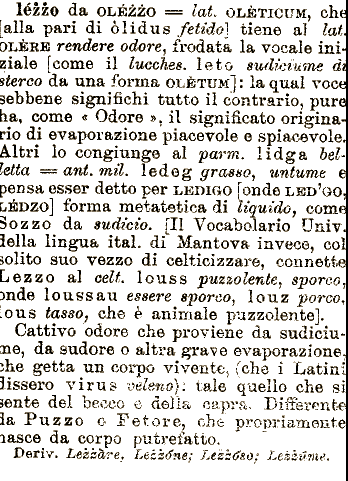 léżżo da OLÉŻŻO = lat. OLÈTICUM, che
[alla pari di òlidus fetido] tiene al lat.
OLÈRE rendere odore, frodata la vocale ini-
ziale [come il lucches. leto sudiciume di
sterco da una forma OLÈTUM]: la qual voce
sebbene significhi tutto il contrario, pure
ha, come « Odore », il significato origina-
rio di evaporazione piacevole e spiacevole.
Altri lo congiunge al parm. lidga bel-
letta = ant. mil. ledeg grasso, untume e
pensa esser detto per LEDIGO [onde LED'GO,
LÉDZO] forma metatetica di liquido, come
Sozzo da sudicio. [Il Vocabolario Univ.
della lingua ital. di Mantova invece, col
solito suo vezzo di celticizzare, connette
Lezzo al celt. louss puzzolente, sporco,
onde loussau essere sporco, louz porco,
lous tasso, che è animale puzzolente].
Cattivo odore che proviene da sudiciu-
me, da sudore o altra grave evaporazione,
che getta un corpo vivente, (che i Latini
dissero virus veleno): tale quello che si
sente del becco e della capra. Differente
da Puzzo e Fetore, che propriamente
nasce da corpo putrefatto.
Deriv. Leżżàre, Leżżóne; Leżżóso; Leżżúme.